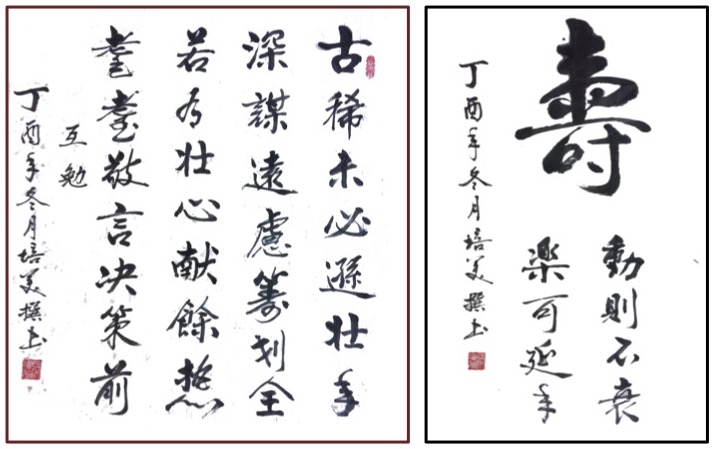 古稀未必遜壮年
深謀遠慮筹划全
若有壮心献餘熱
耄耋敢言决策前
互勉
丁酉年冬月培美撰书
壽
動則不衰
楽可延年
丁酉年冬月培美撰书